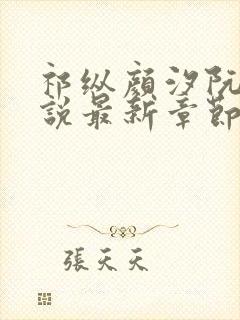 祁纵顾汐阮
說最新章節
張天天